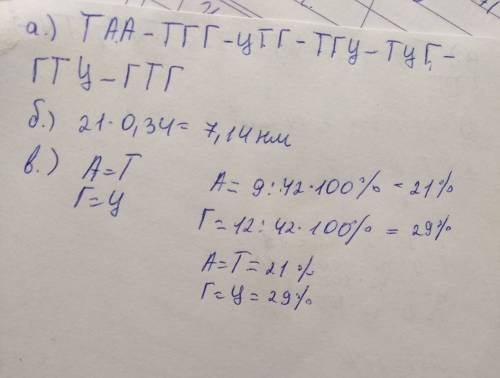 а.) ТАА - ТГГ - ЦТГ - ТГЦ - ТЦГ -
ГТЦ - ГТГ
б.) 21 · 0,34 = 7,14 нм
в.) А = Т
Г = Ц
А = 9 : 42 · 100% = 21%
Г = 12 : 42 · 100% = 29%
А = Т = 21%
Г = Ц = 29%